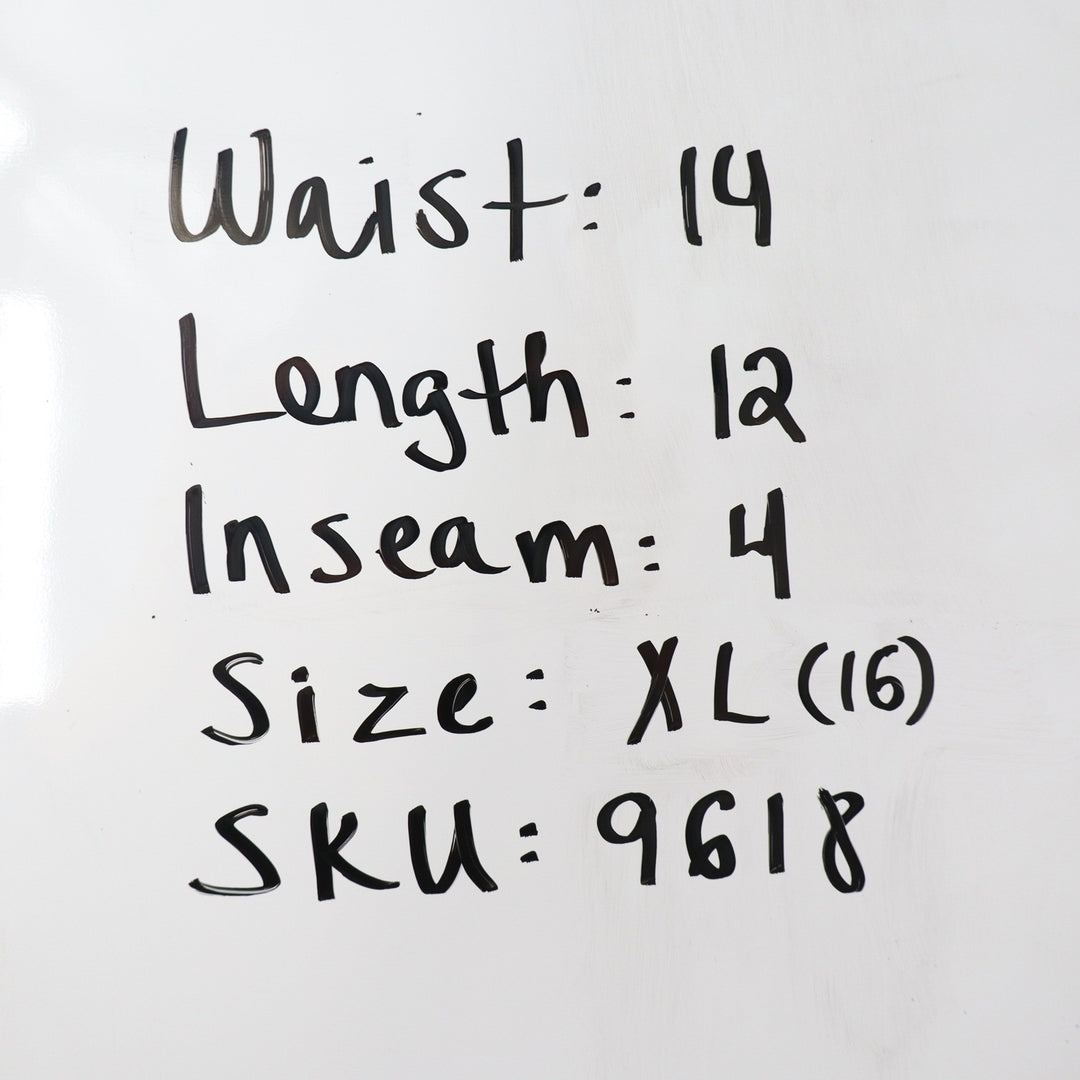 Waist: 14
Length: 12
Inseam: 4
Size: XL (16)
SKU: 9618